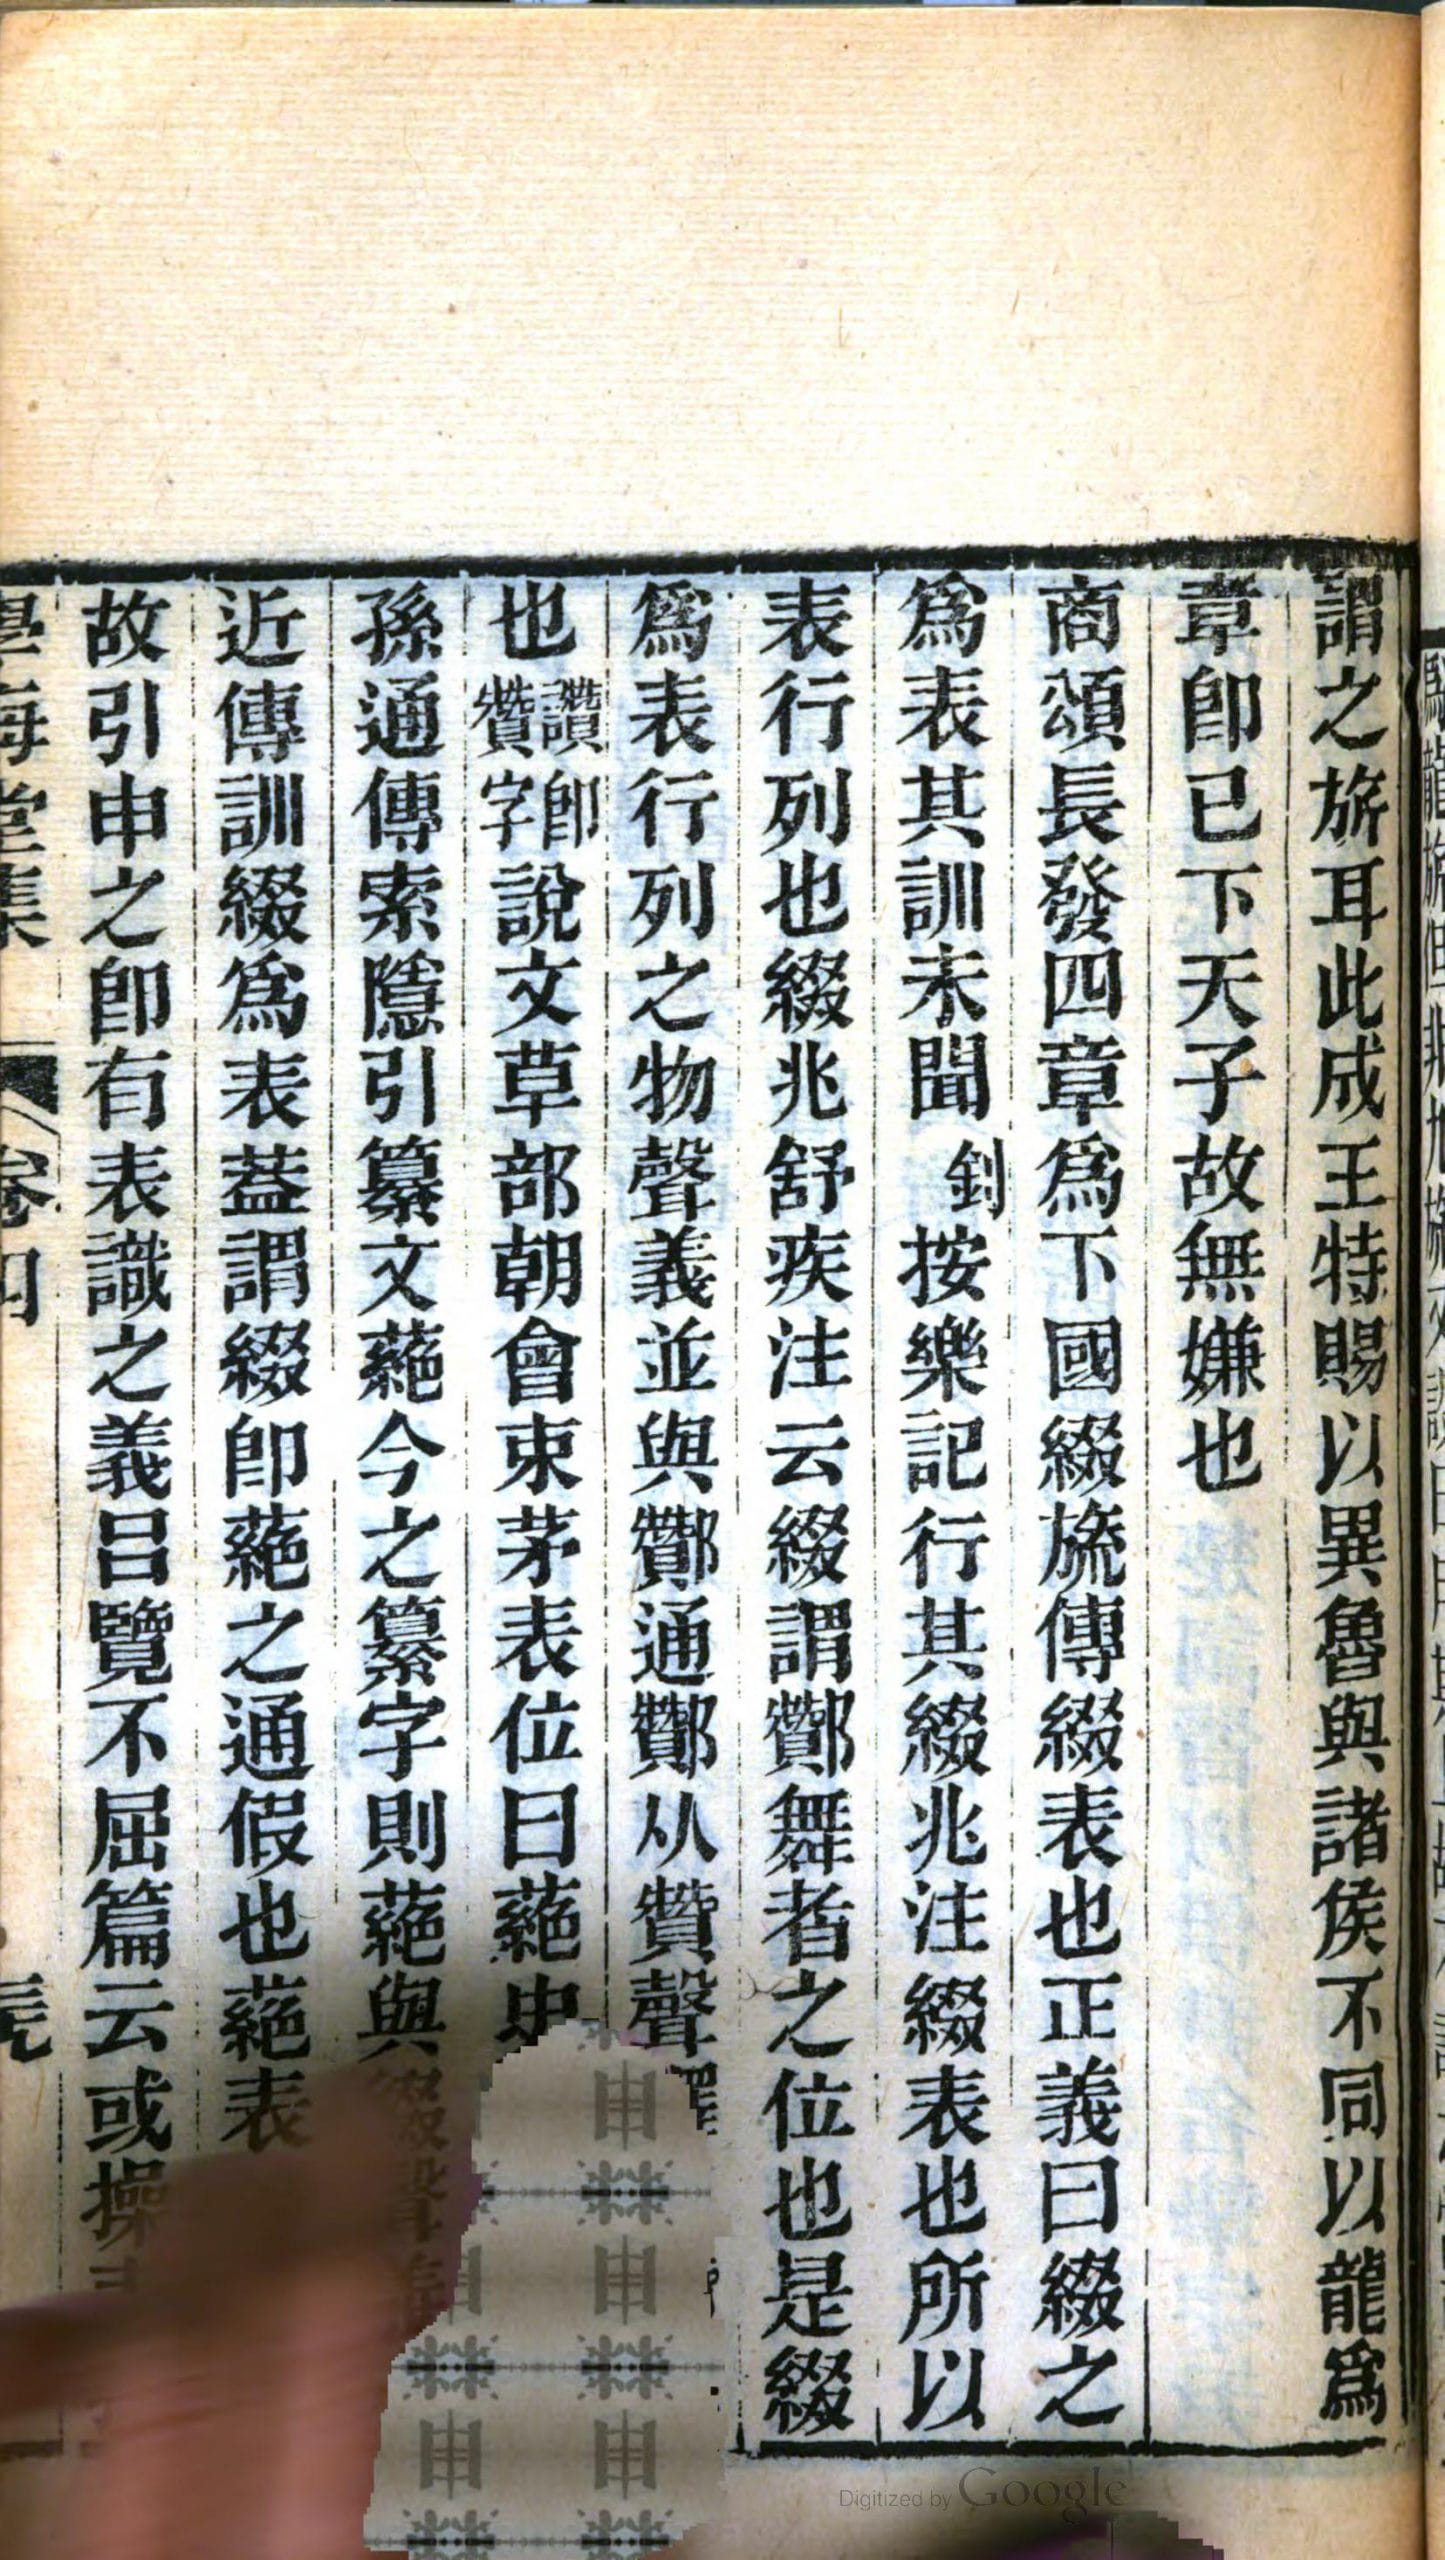 謂之旂耳此成王特賜以異魯與諸侯不同以龍爲
章卽已下天子故無嫌也
商頌長發四章爲下國綴旒傳綴表也正義曰綴之
爲表其訓未聞釗按樂記行其綴兆注綴表也所以
表行列也綴兆舒疾注云綴謂酇舞者之位也是綴
爲表行列之物聲義並與酇通酇从贊聲
也讚卽儹字說文草部朝會束茅表位曰蕝史
孫通傳索隱引纂文蕝今之纂字則蕝與綴聲
近傳訓綴爲表葢謂綴卽蕝之通假也蕝表
故引申之卽有表識之義呂覽不屈篇云或操
學海堂集 卷四
Digitized by Google